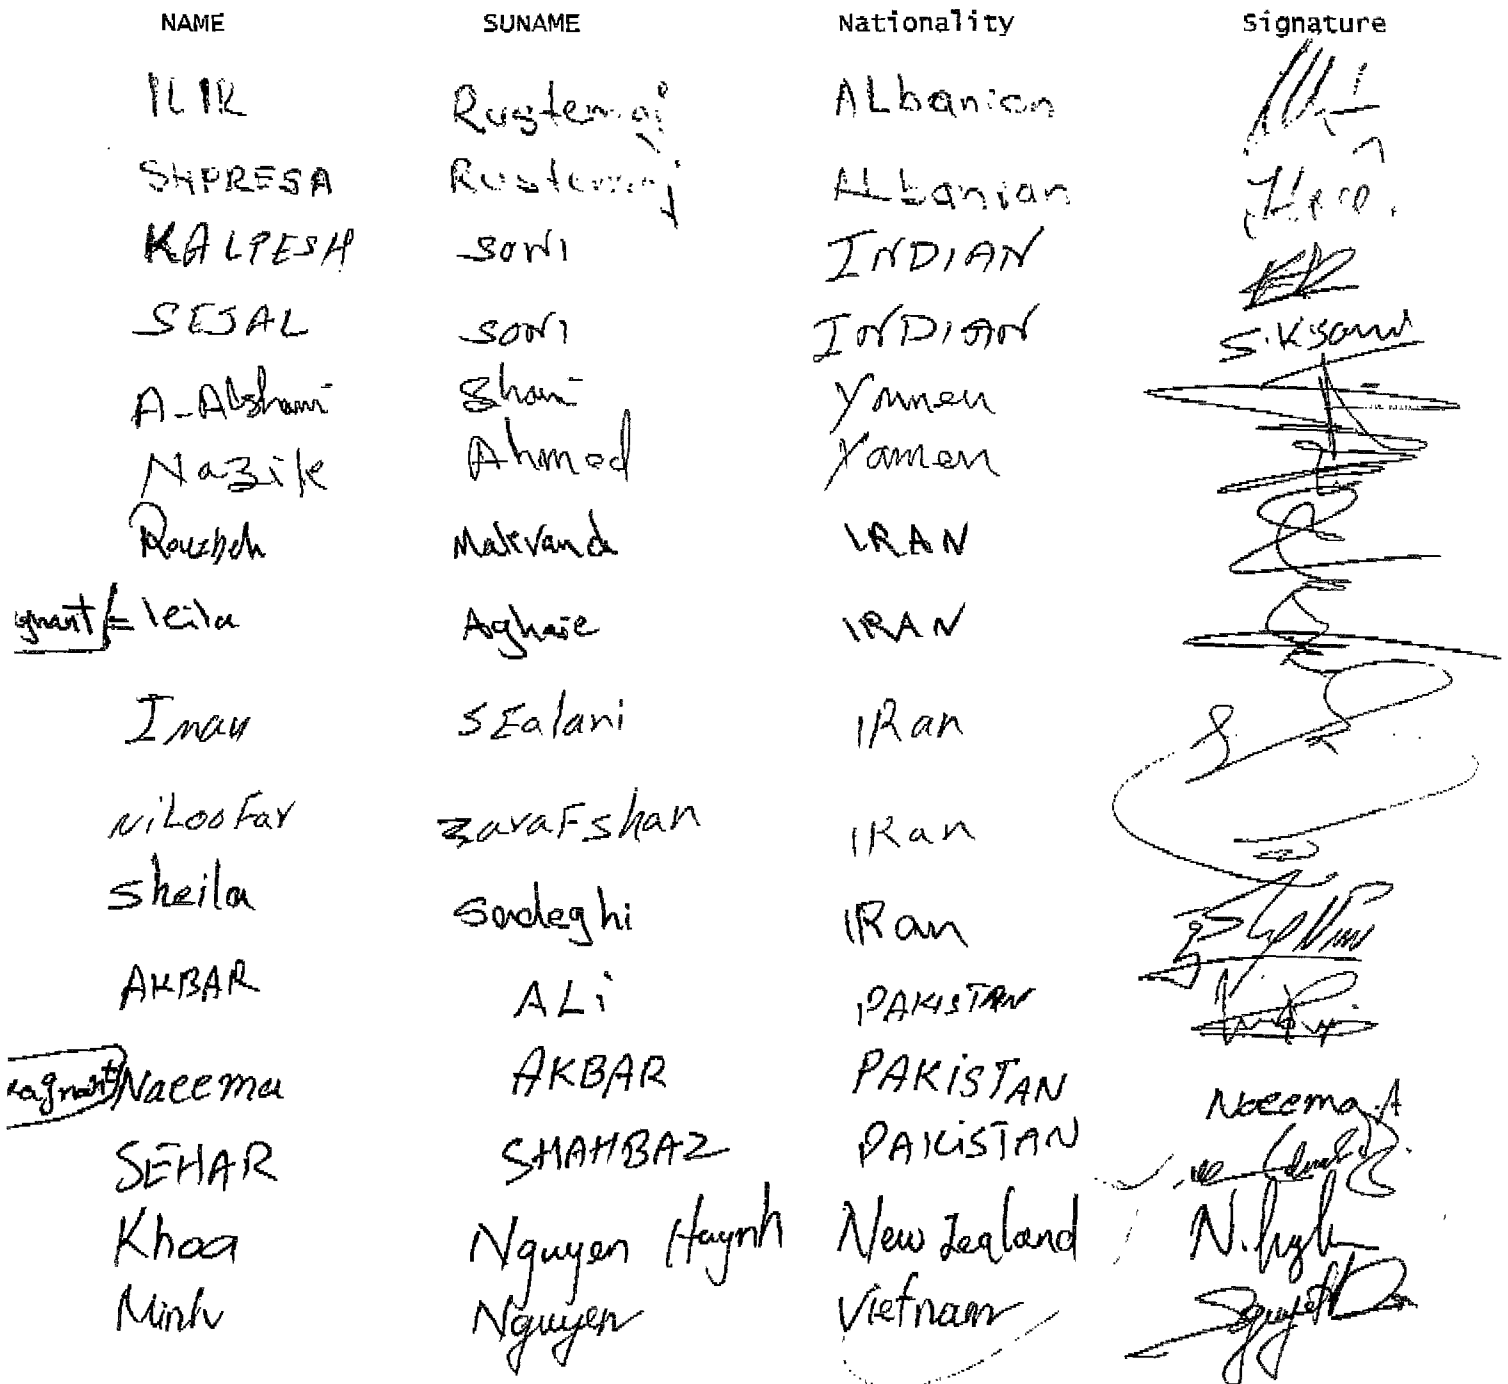 NAME SUNAME Nationality Signature
ILIR Rustemaj ALbanian
SHPRESA Rustemaj ALbanian
KALPESH SONI INDIAN
SEJAL SONI INDIAN S.K Soni
A-Alshami Shami Yamen
Nazik Ahmed Yamen
Rouzbeh Malevand IRAN
gnant leila Aghaie IRAN
Iman SEalani IRan
NiLooFar zaraFshan IRan
Sheila Sadeghi IRan
AKBAR ALi PAKISTAN
egnant Naeema AKBAR PAKiSTAN Naeema.A
SEHAR SHAHBAZ PAKiSTAN
Khoa Nguyen Huynh New Zealand
Minh Nguyen Vietnam